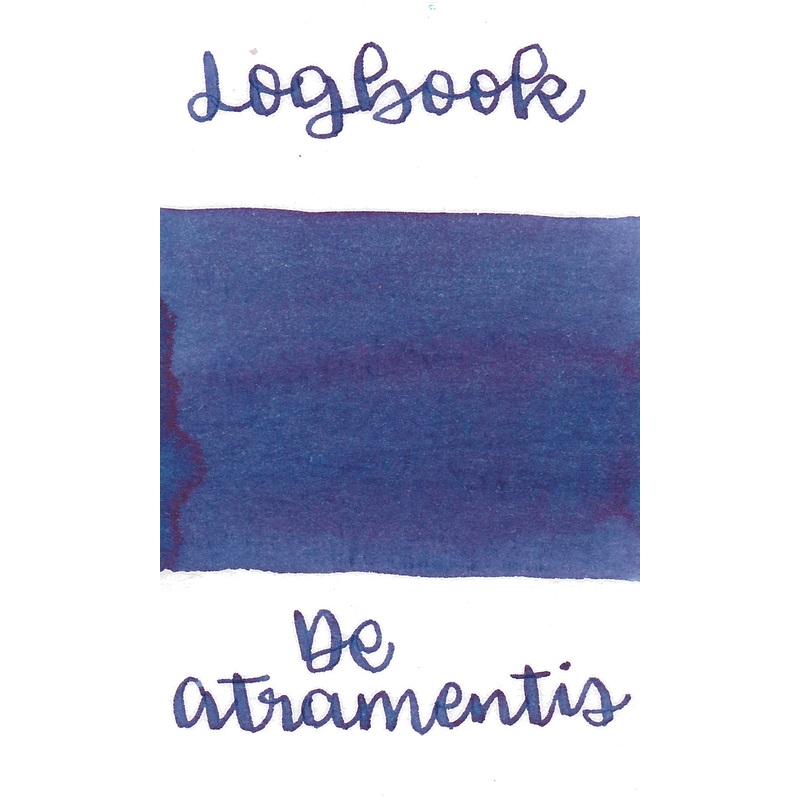 Logbook
De
atramentis